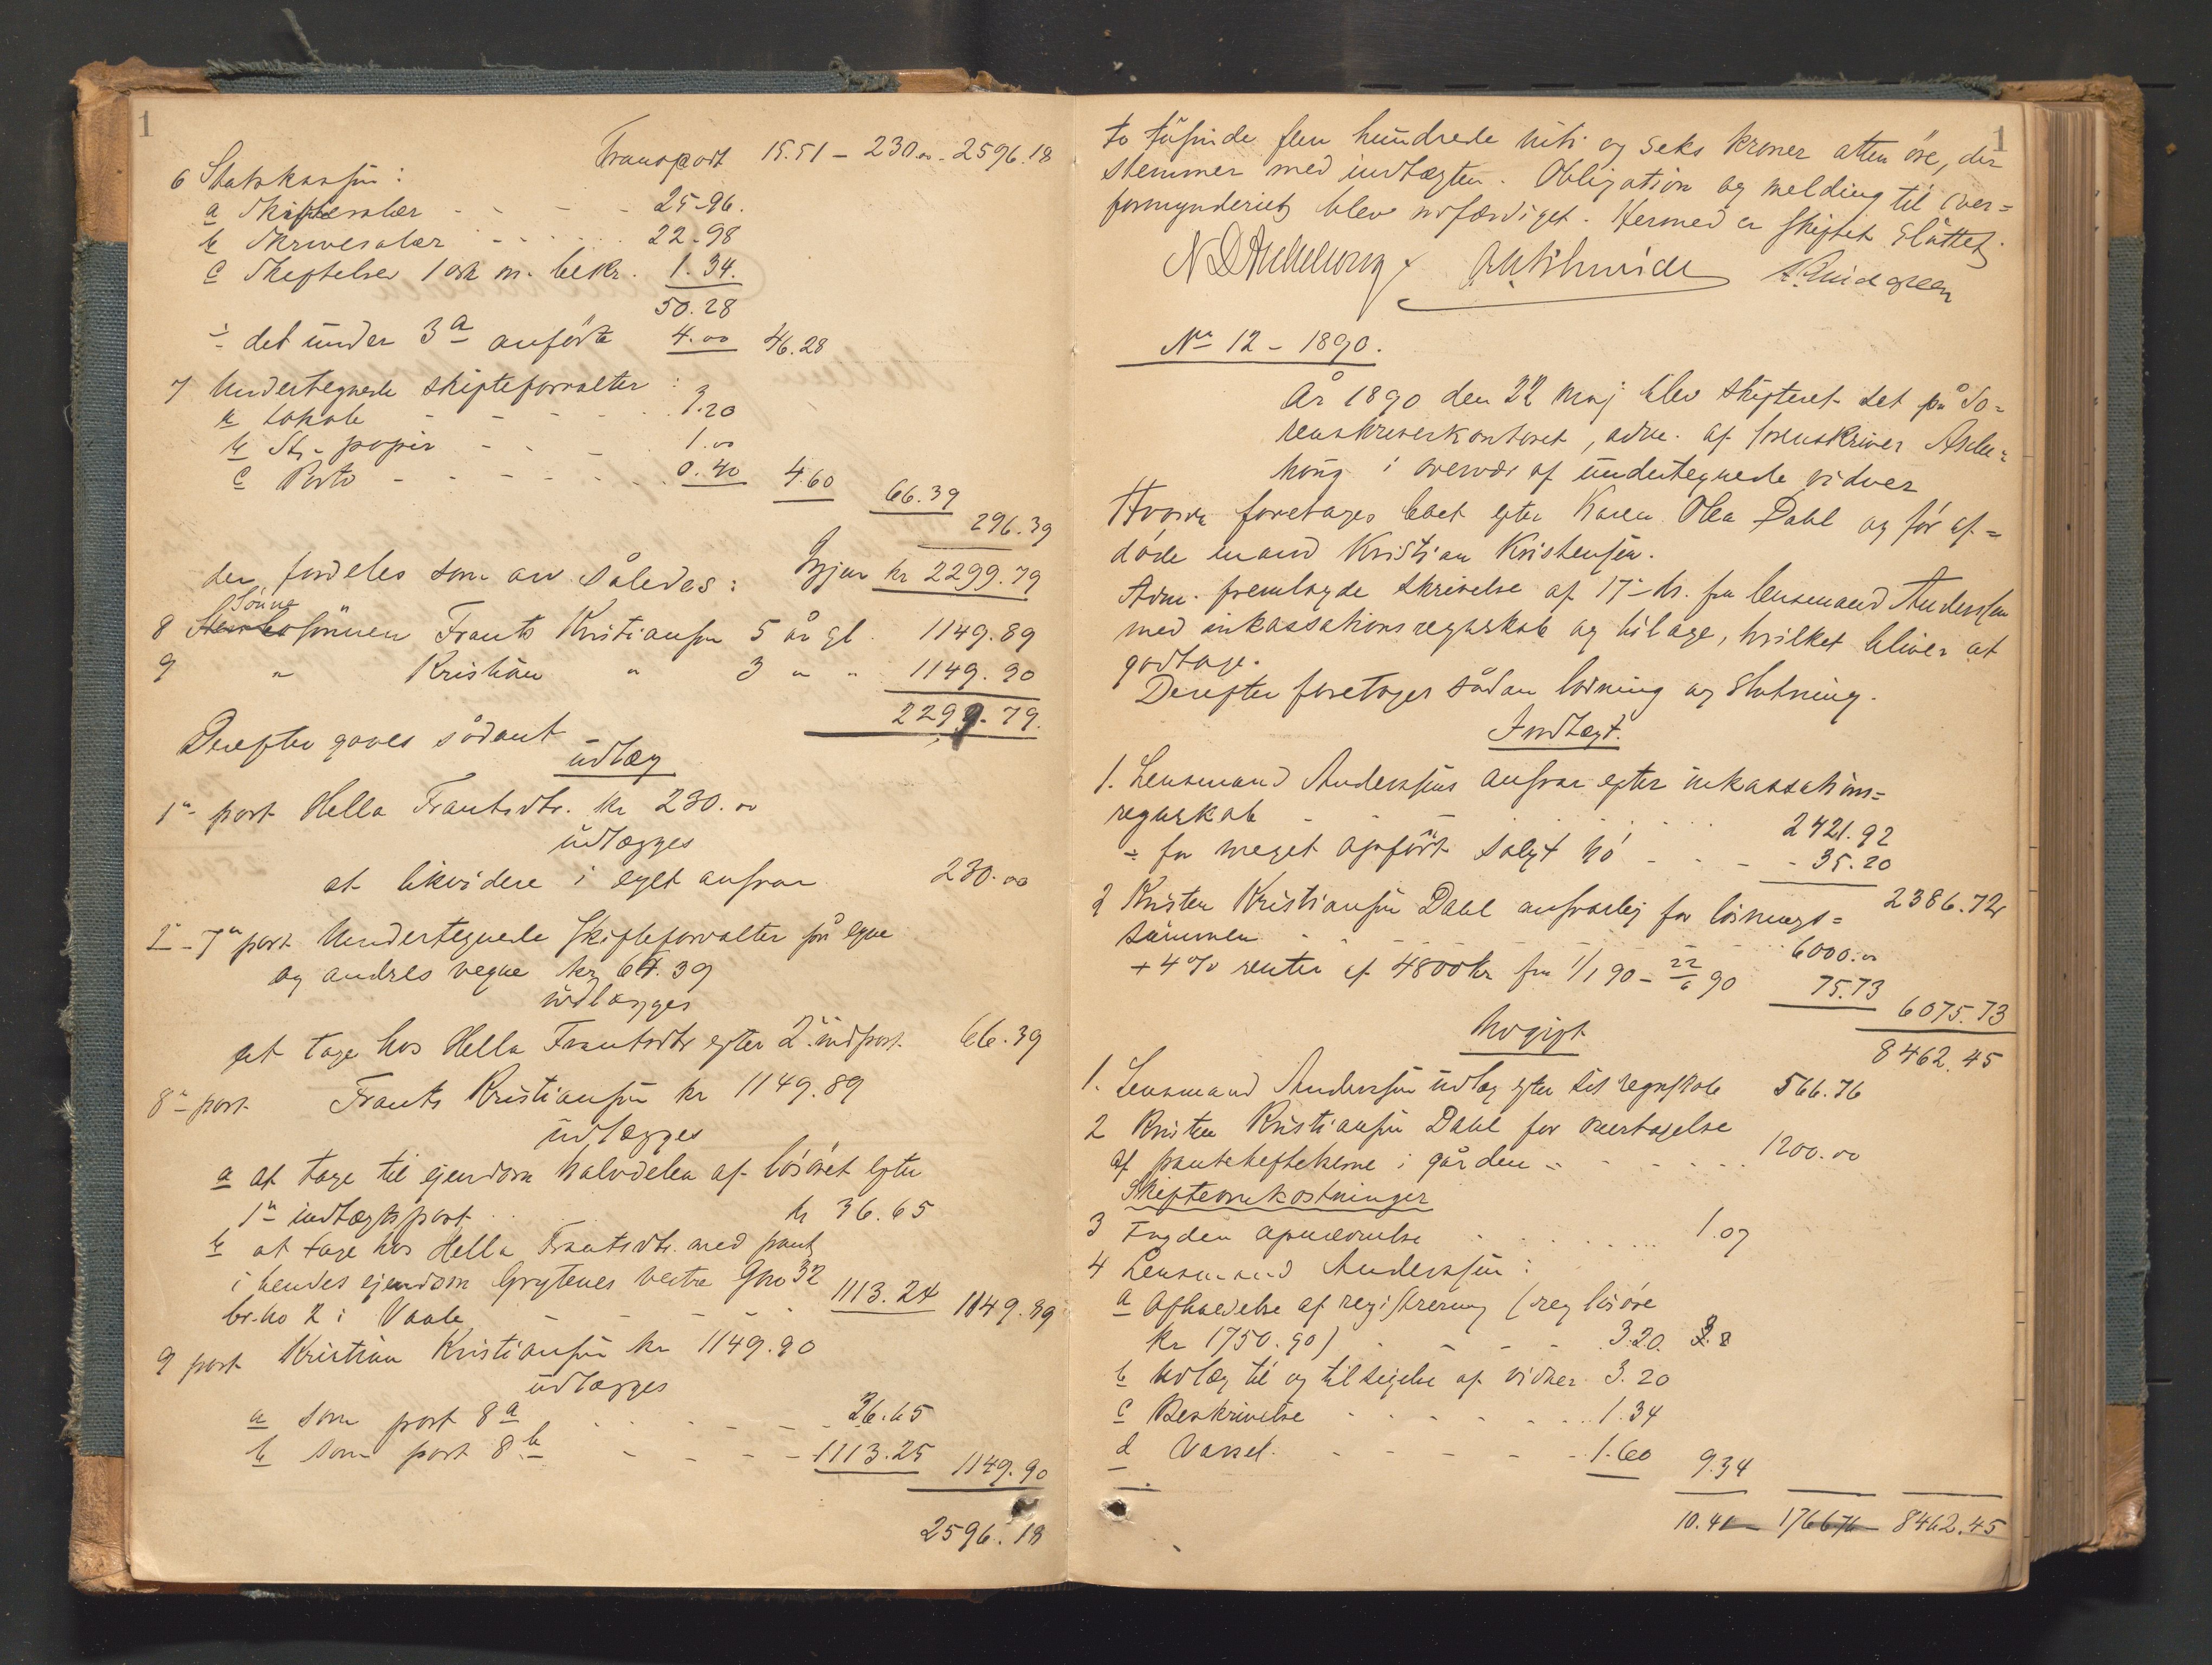 1
Transport 15.51 - 230.00 - 2596.18
6 Statskassen:
a Skiftesalær - - - - 25-96.
b Skrivesalær - - - - 22-98
c Skiftelsev 1 ark m. bekr. 1.34.
50.28
÷ det under 3 a anförte 4.00 46.28
7 Undertegnede skifteforvalter:
a Lokale - - - - 3.20
b St. papir - - - 1.00
c Porto - - - - 0.40 4.60 66.39
296.39
Igjen kr 2299.79
der fordeles som arv således:
Sönne
8 sönnen Frants Kristiansen 5 år gl. 1149.89
9 " Kristian " 3 " " 1149.90
2299.79.
Derefter gaves sådant
udlæg
1ste post Hella Frantsdtr. kr 230.00
udlægges
at likvidere i eget ansvar 230.00
2-7 post Undertegnede Skifteforvalter på egne
og andres vegne kr 66.39
udlægges
at tage hos Hella Frantsdtr efter 2 indpost. 66.39
8 post Frants Kristiansen kr 1149.89
udlægges
a at tage til ejendom halvdelen af lösöret efter
1 indtægtspost kr 36.65
b at tage hos Hella Frantsdtr. med pant
i hendes ejendom Grytenes vestre Gno 32
br.no 2 i Vaale - - - - 1113.24 1149.89
9 post Kristian Kristiansen kr 1149.90
udlægges
a som post 8 a - - - - 36.65
b som post 8 b - - - - 1113.25 1149.90
2596.18
1
to tusinde fem hundrede niti og seks kroner atten öre, der
stemmer med indtægten. Obligation og melding til over=
formynderiet blev udfærdiget. Hermed er skiftet sluttet.
No 12 - 1890.
År 1890 den 22 maj blev skifteret set på So=
renskriverkontoret, adm. af sorenskriver Aschle=
houg i overvær af undertegnede vidner
Hvorda foretages boet efter Karen Olea Dahl og för af=
døde mand Kristian Kristensen.
Adm. fremlagde skrivelse af 17 ds. fra lensmand Anderssen
med inkassationsregnskab og bilage, hvilket bliver at
godtage.
Derefter foretages sådan lodning og slutning.
Indtægt.
1. Lensmand Anderssens ansvar efter inkassations=
regnskab - - - - 2421.92
÷ for meget opfört solgt hö - - - 35.20
2386.72
2 Kristen Kristiansen Dahl ansvarlig for lösnings=
summen - - - - 6000.00
+ 4% renter af 4800 kr fra 1/1 90 - 22/6 90 75.73
6075.73
8462.45
Udgift
1. Lensmand Anderssen udlæg efter sit regnskab 566.76
2 Kristen Kristiansen Dahl for overtagelse
af pantehæftelserne i gården - - - 1200.00
Skifteomkostninger
3 Fogden - - - - 1.07
4 Lensmand Anderssen:
a Afholdelse af registrering (reg lösöre
kr 1750.90) - - - - 3.20
b Udlæg til og tilsigelse af vidner 3.20
c Beskrivelse - - - - 1.34
d Varsel. - - - - 1.60 9.34
10.41 - 1766.76 - 8462.45